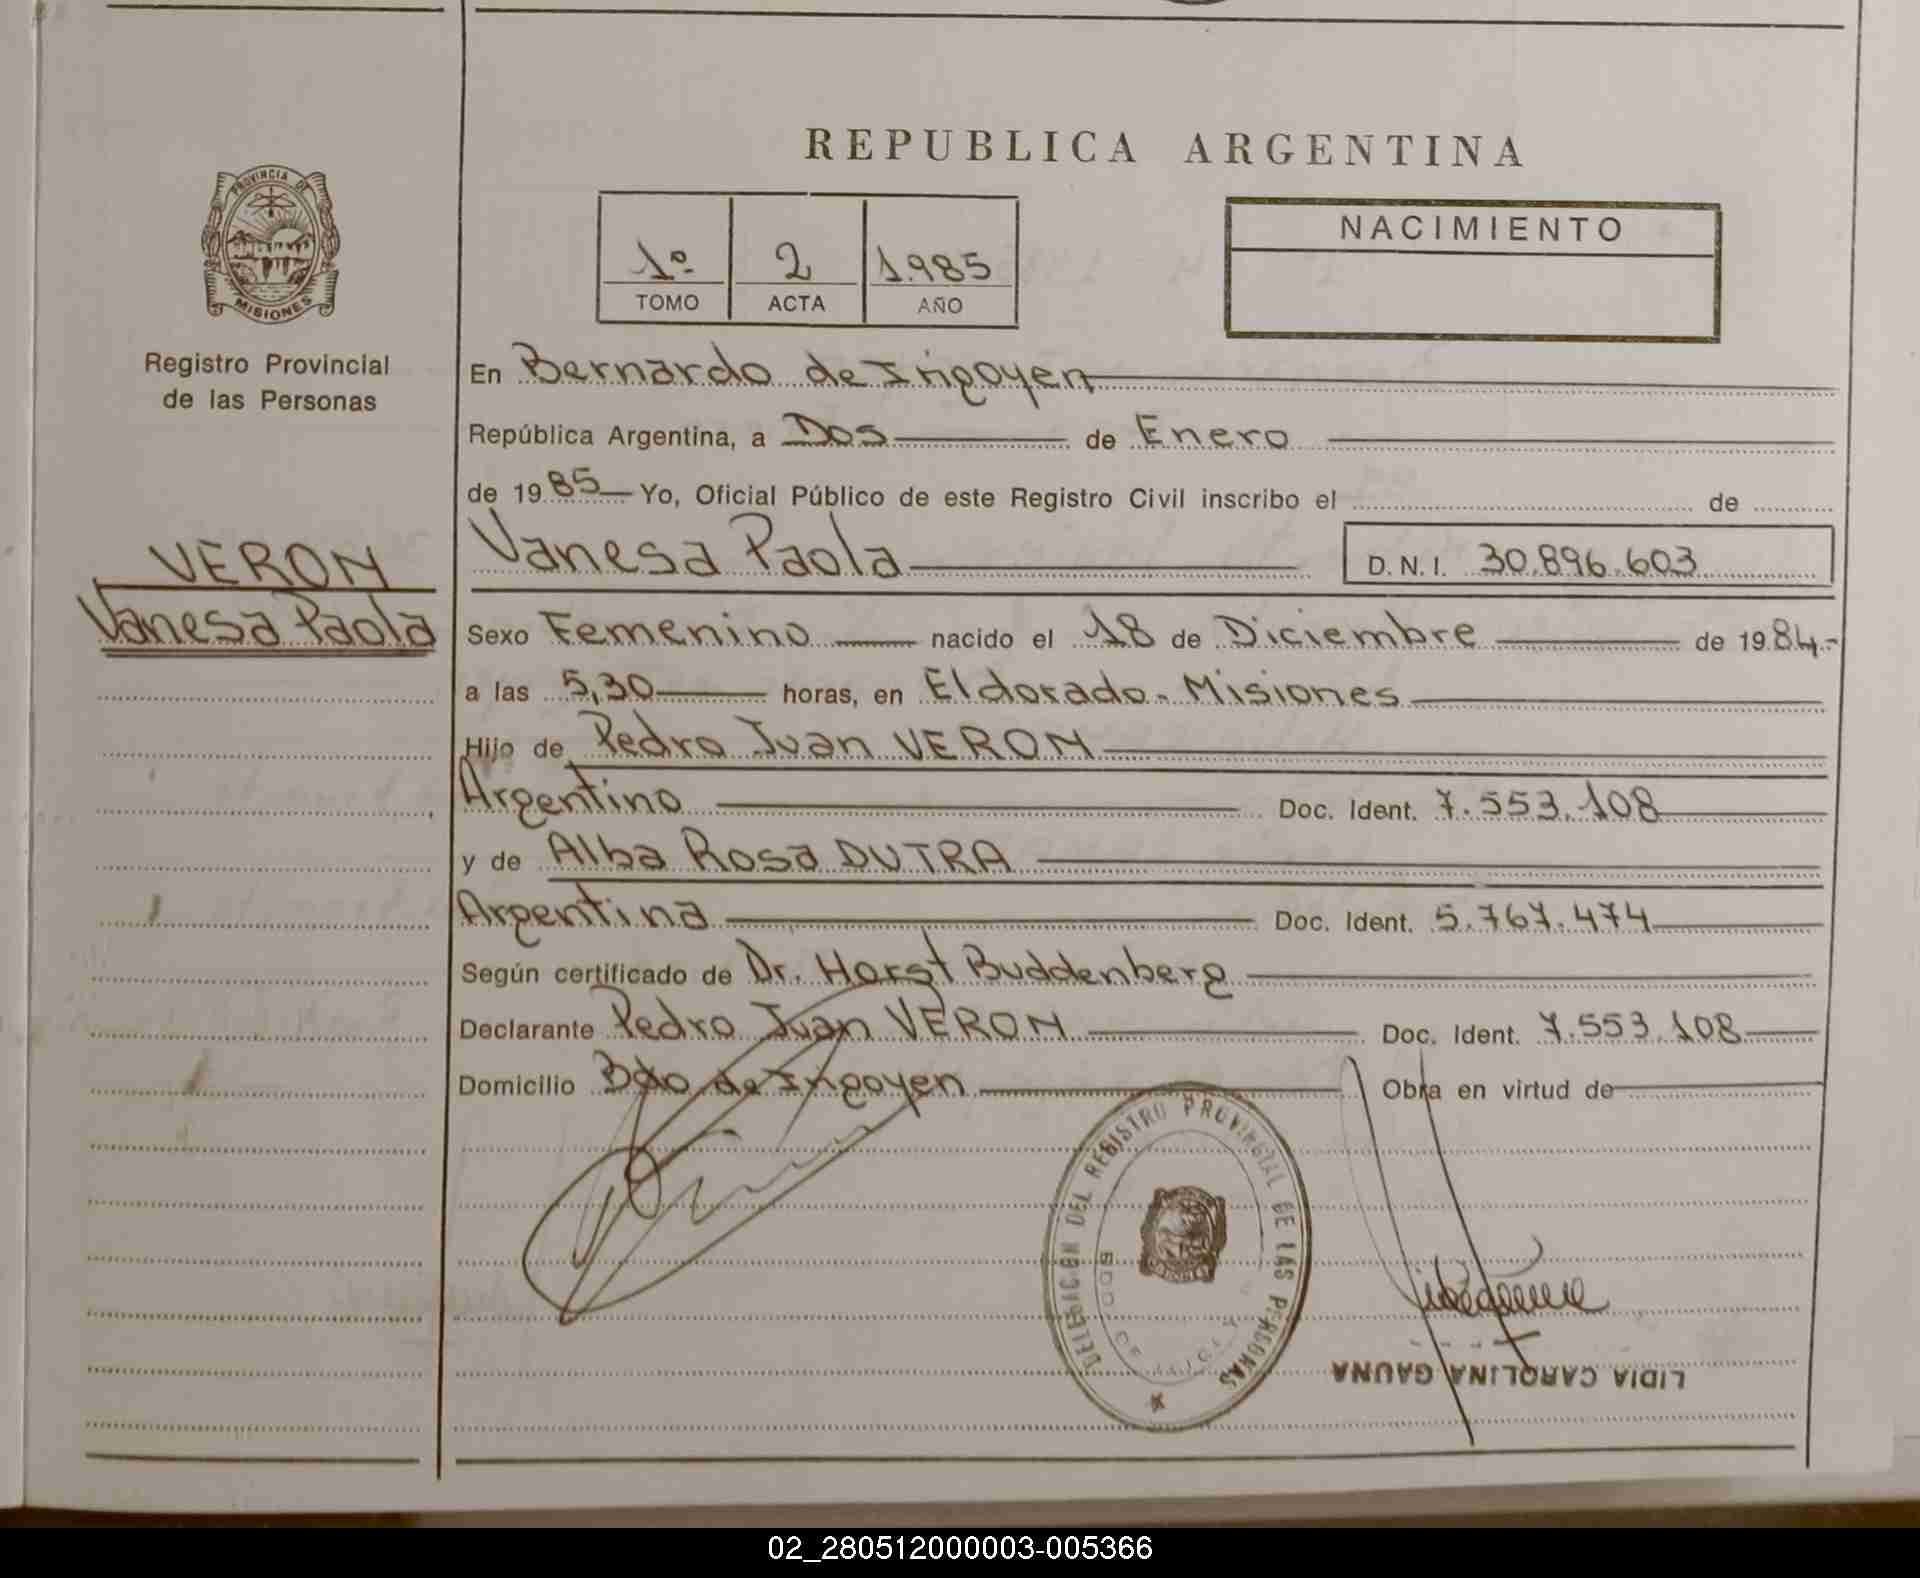 REPUBLICA ARGENTINA
PROVINCIA DE
MISIONES
Registro Provincial
de las Personas
1º 2 1.985
TOMO ACTA AÑO
NACIMIENTO
En Bernardo de Irigoyen
República Argentina, a Dos de Enero
de 1985 Yo, Oficial Público de este Registro Civil inscribo el de
VERON
Vanesa Paola
Vanesa Paola D.N.I. 30.896.603
Sexo Femenino nacido el 18 de Diciembre de 1984.-
a las 5,30 horas, en Eldorado - Misiones
Hijo de Pedro Juan VERON
Argentino Doc. Ident. 7.553.108
y de Alba Rosa DUTRA
Argentina Doc. Ident. 5.767.474
Según certificado de Dr. Horst Buddenberg
Declarante Pedro Juan VERON Doc. Ident. 7.553.108
Domicilio Bdo de Irigoyen Obra en virtud de
DELEGACION DEL REGISTRO PROVINCIAL DE LAS PERSONAS
LIDIA CAROLINA GAUNA
02_280512000003-005366